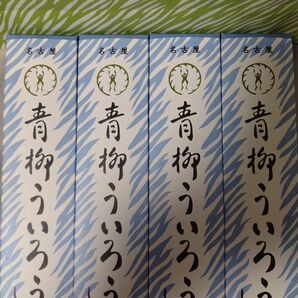 名古屋
青柳ういろう
名古屋
青柳ういろう
名古屋
青柳ういろう
名古屋
青柳ういろう